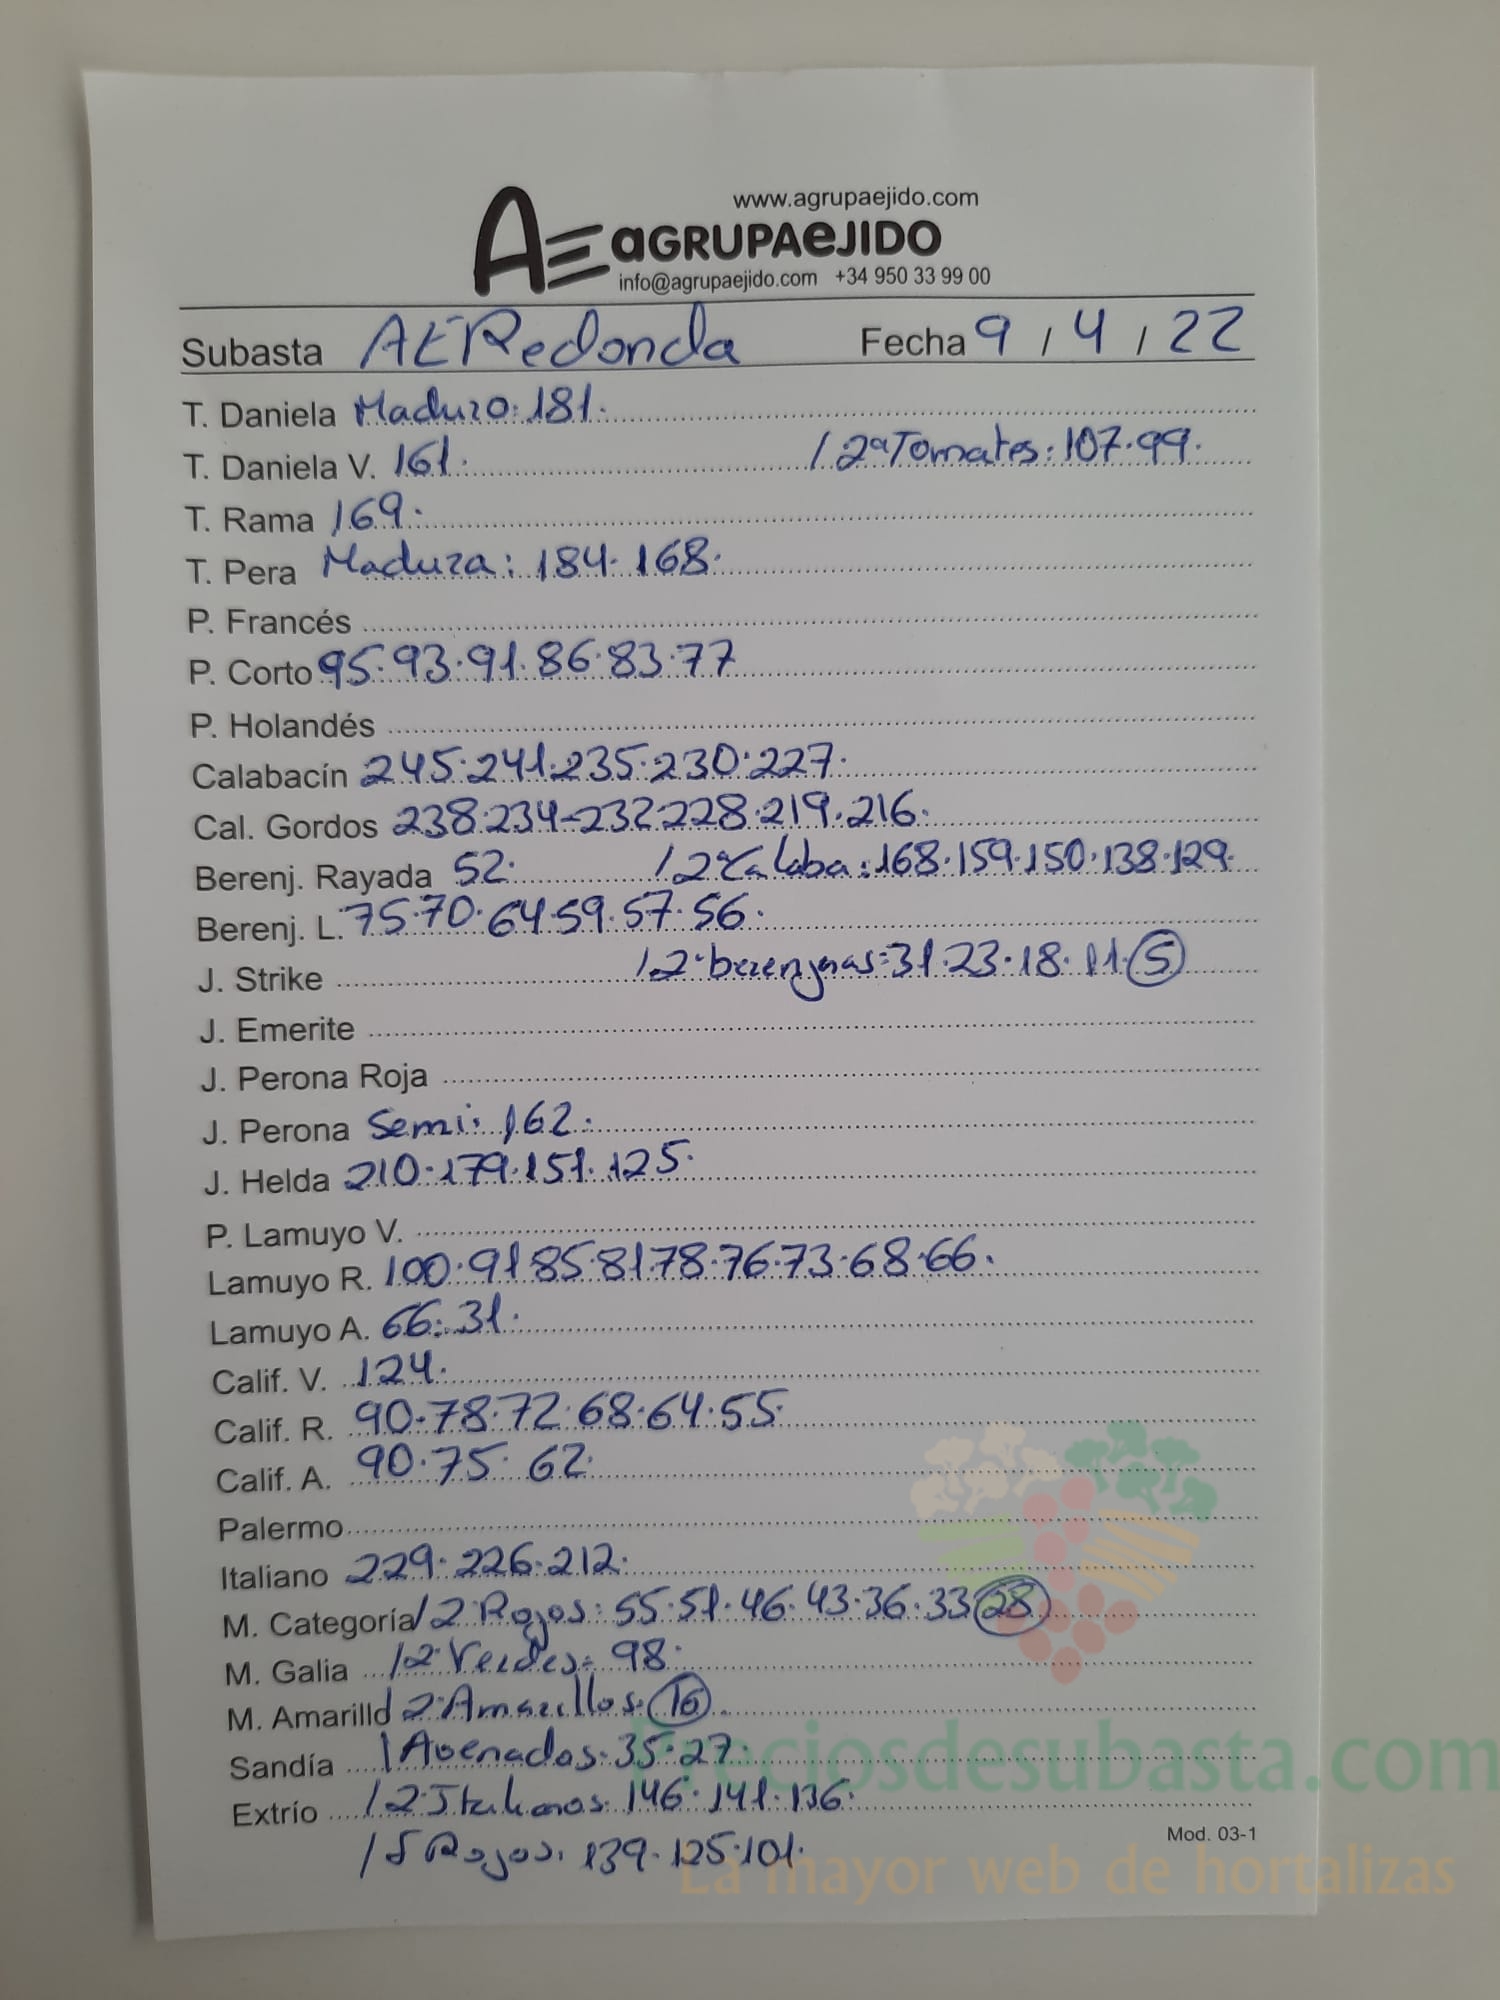 www.agrupaejido.com
AE aGRUPAeJIDO
info@agrupaejido.com +34 950 33 99 00
Subasta AERedonda Fecha 9 / 4 / 22
T. Daniela Maduro: 181.
T. Daniela V. 161. / 2ª Tomates: 107.99.
T. Rama 169.
T. Pera Madura: 184. 168.
P. Francés
P. Corto 95.93.91.86.83.77
P. Holandés
Calabacín 245.241.235.230.227.
Cal. Gordos 238.234-232.228.219.216.
Berenj. Rayada 52. / 2ª Calaba: 168.159.150.138.129.
Berenj. L. 75.70.64.59.57.56.
J. Strike / 2ª berenjenas: 31.23.18.11.5
J. Emerite
J. Perona Roja
J. Perona Semi: 162.
J. Helda 210.179.151.125.
P. Lamuyo V.
Lamuyo R. 100.91.85.81.78.76.73.68.66.
Lamuyo A. 66.31.
Calif. V. 124.
Calif. R. 90.78.72.68.64.55.
Calif. A. 90.75. 62.
Palermo
Italiano 229.226.212.
M. Categoría / 2ª Rojos: 55.51.46.43.36.33 28
M. Galia / 2ª Verdes: 98.
M. Amarillo / 2ª Amarillos: 16.
Sandía / Avenados: 35.27.
Extrío / 2ª Italianos: 146.141.136.
Mod. 03-1
/ S Rojos: 139.125.101.
Preciosdesubasta.com
La mayor web de hortalizas